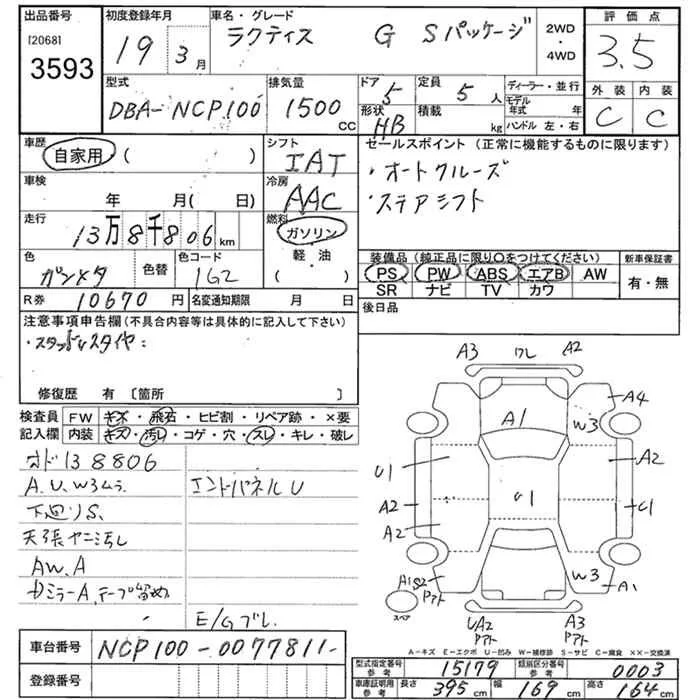 出品番号 初度登録年月 車名・グレード 2WD・4WD 評価点
[2068] 3593 19 3月 ラクティス G Sパッケージ 3.5
型式 DBA-NCP100 排気量 1500 CC
ドア 5 形状 HB 定員 5人 積載 kg
ディーラー・並行 モデル年式 年 ハンドル 左・右
外装 C 内装 C
車歴 自家用 ( ) シフト IAT
車検 年 月( 日) 冷房 AAC
走行 13万8千806km 燃料 ガソリン 軽油 ( )
色 ガンメタ 色替 色コード 1G2
R券 10670円 名変通知期限 月 日
セールスポイント (正常に機能するものに限ります)
・オートクルーズ
・ステアシフト
装備品 (純正品に限り○をつけてください) 新車保証書
PS PW ABS エアB AW 有・無
SR ナビ TV カワ
後日品
注意事項申告欄 (不具合内容等は具体的に記入して下さい)
・スタッドレスタイヤ:
修復歴 有 [箇所 ]
検査員 FW キズ・飛石・ヒビ割・リペア跡・×要
記入欄 内装 キズ・汚レ・コゲ・穴・スレ・キレ・破レ
オド138806
A.U.W3ムラ エンドパネルU
下廻りS.
天張ヤニ汚し
AW.A
ガミラーA.テープ留め
E/Gブレ.
車台番号 NCP100-0077811-
登録番号
A3 ワレ A2
A4
A1
W3
U1 A2
U1
A2 C1
A2
W3
A1S2 プアト A1
スペア
UA2 プアト A3 プアト
A-キズ E-エクボ U-凹み W-補修跡 S-サビ C-腐食 ××-交換済
型式指定番号 参考 15179 類別区分番号 参考 0003
車庫証明用 参考 長さ 395cm 幅 169cm 高さ 164cm